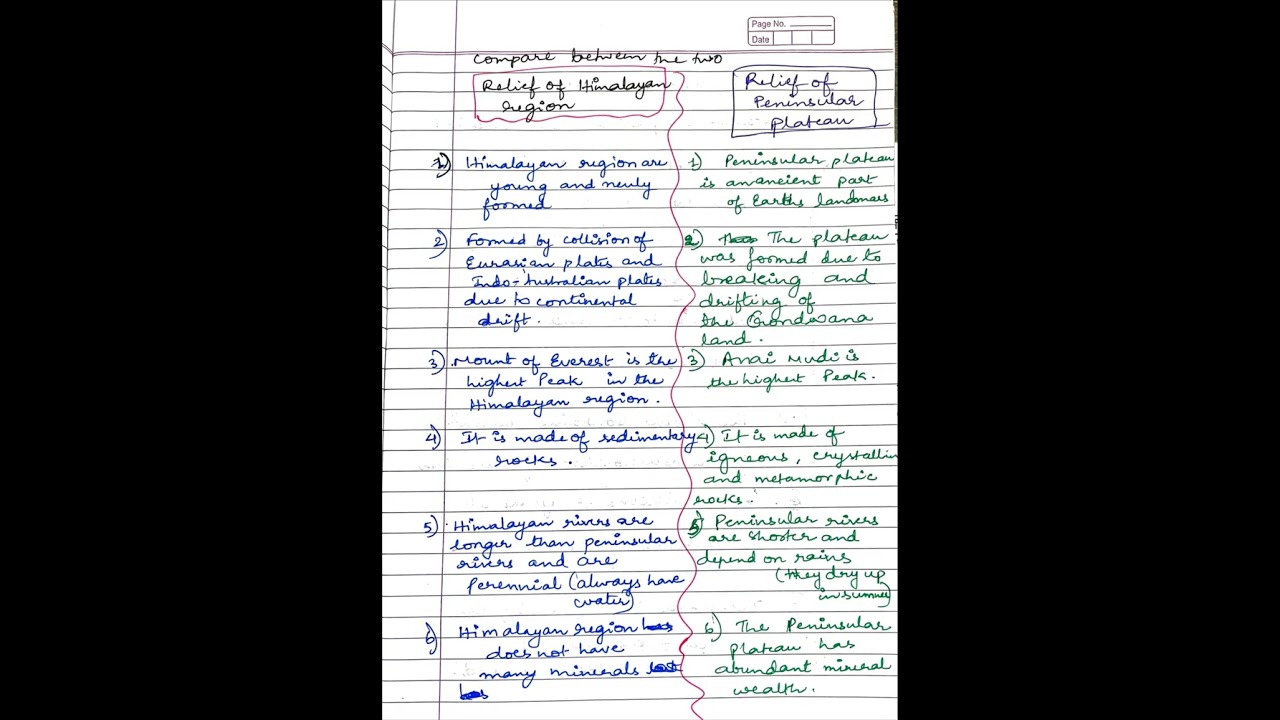 Page No.
Date
compare between the two
Relief of Himalayan
region
Relief of
Peninsular
plateau
1) Himalayan region are
young and newly
formed
2) Formed by collision of
Eurasian plates and
Indo-Australian plates
due to continental
drift.
3) Mount of Everest is the
highest Peak in the
Himalayan region.
4) It is made of sedimentary
rocks.
5) Himalayan rivers are
longer than peninsular
rivers and are
perennial (always have
water)
6) Himalayan region has
does not have
many minerals
1) Peninsular plateau
is an ancient part
of Earths landmass
2) The plateau
was formed due to
breaking and
drifting of
the Gondwana
land.
3) Anai Mudi is
the highest Peak.
4) It is made of
igneous, crystallin
and metamorphic
rocks.
5) Peninsular rivers
are shorter and
depend on rains
(they dry up
in summer)
6) The Peninsular
plateau has
abundant mineral
wealth.